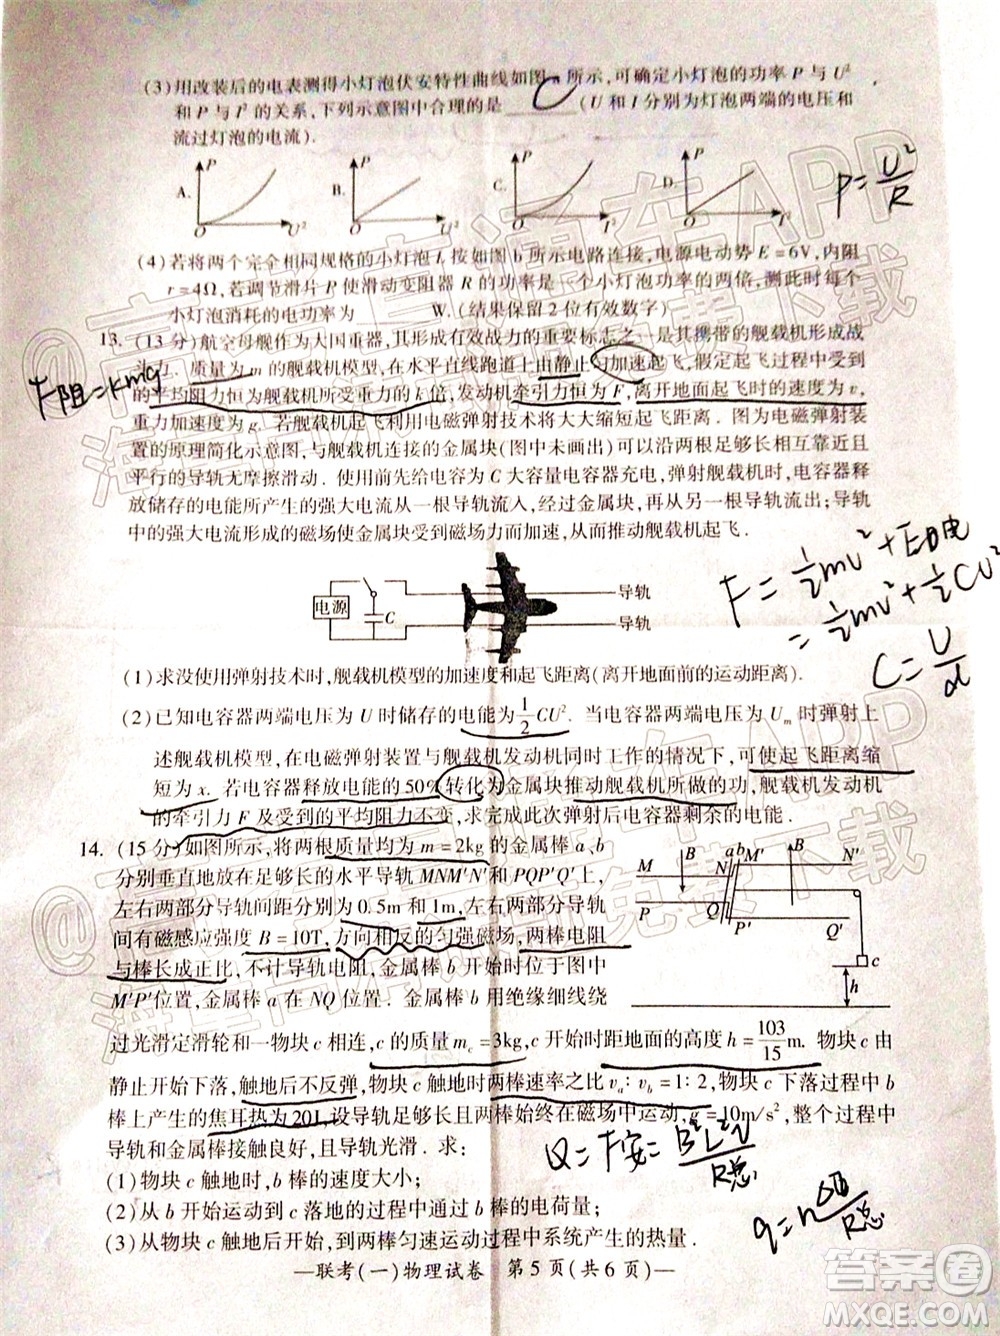 (3)用改装后的电表测得小灯泡伏安特性曲线如图a所示,可确定小灯泡的功率 P 与 U²
和 P 与 I² 的关系,下列示意图中合理的是 C (U 和 I 分别为灯泡两端的电压和
流过灯泡的电流).
A. P O U² B. P O U² C. P O I² D. P O I²
P=U²/R
(4)若将两个完全相同规格的小灯泡 L 按如图 b 所示电路连接,电源电动势 E=6V,内阻
r=4Ω,若调节滑片 P 使滑动变阻器 R 的功率是一个小灯泡功率的两倍,测此时每个
小灯泡消耗的电功率为 W.(结果保留 2 位有效数字)
13.(13 分)航空母舰作为大国重器,其形成有效战力的重要标志之一是其携带的舰载机形成战
力.质量为 m 的舰载机模型,在水平直线跑道上由静止匀加速起飞,假定起飞过程中受到
的平均阻力恒为舰载机所受重力的 k 倍,发动机牵引力恒为 F,离开地面起飞时的速度为 v,
F阻=kmg
重力加速度为 g.若舰载机起飞利用电磁弹射技术将大大缩短起飞距离.图为电磁弹射装
置的原理简化示意图,与舰载机连接的金属块(图中未画出)可以沿两根足够长相互靠近且
平行的导轨无摩擦滑动.使用前先给电容为 C 大容量电容器充电,弹射舰载机时,电容器释
放储存的电能所产生的强大电流从一根导轨流入,经过金属块,再从另一根导轨流出;导轨
中的强大电流形成的磁场使金属块受到磁场力而加速,从而推动舰载机起飞.
电源 C 导轨
导轨
F=½mv²+E电
=½mv²+½CU²
C=U/d
(1)求没使用弹射技术时,舰载机模型的加速度和起飞距离(离开地面前的运动距离).
(2)已知电容器两端电压为 U 时储存的电能为 1/2 CU².当电容器两端电压为 Uₘ 时弹射上
述舰载机模型,在电磁弹射装置与舰载机发动机同时工作的情况下,可使起飞距离缩
短为 x.若电容器释放电能的 50%转化为金属块推动舰载机所做的功,舰载机发动机
的牵引力 F 及受到的平均阻力不变,求完成此次弹射后电容器剩余的电能.
14.(15 分)如图所示,将两根质量均为 m=2kg 的金属棒 a、b
分别垂直地放在足够长的水平导轨 MNM′N′和 PQP′Q′上,
左右两部分导轨间距分别为 0.5m 和 1m,左右两部分导轨
间有磁感应强度 B=10T,方向相反的匀强磁场,两棒电阻
与棒长成正比,不计导轨电阻,金属棒 b 开始时位于图中
M′P′位置,金属棒 a 在 NQ 位置.金属棒 b 用绝缘细线绕
M B N ab M′ B N′
P Q P′ Q′ c h
过光滑定滑轮和一物块 c 相连,c 的质量 m_c=3kg,c 开始时距地面的高度 h=103/15m.物块 c 由
静止开始下落,触地后不反弹,物块 c 触地时两棒速率之比 vₐ:v_b=1:2,物块 c 下落过程中 b
棒上产生的焦耳热为 20J,设导轨足够长且两棒始终在磁场中运动,g=10m/s²,整个过程中
导轨和金属棒接触良好,且导轨光滑.求:
(1)物块 c 触地时,b 棒的速度大小;
(2)从 b 开始运动到 c 落地的过程中通过 b 棒的电荷量;
(3)从物块 c 触地后开始,到两棒匀速运动过程中系统产生的热量.
Q=F安=B²L²v/R总
q=nΔΦ/R总
—联考(一)物理试卷 第 5 页(共 6 页)—
@高考直通车APP
海量高清试卷免费下载
答案圈
MXQE.COM